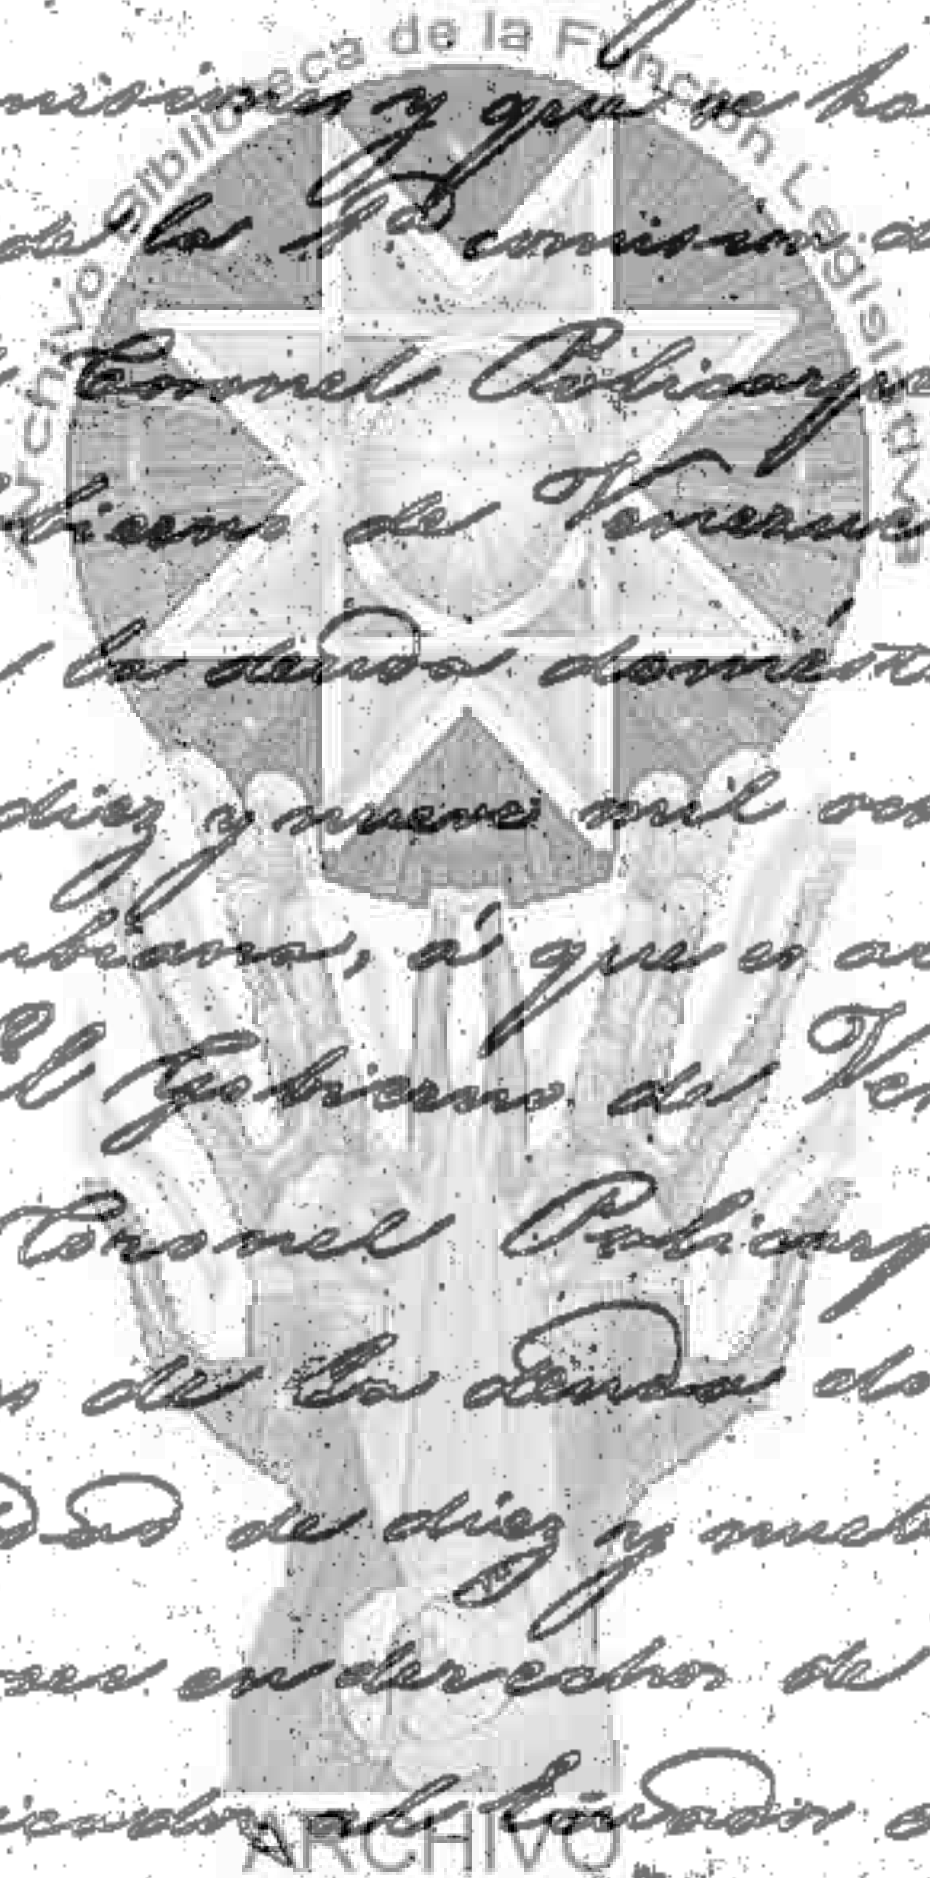 Archivo Biblioteca de la Función Legislativa
misiones y que se ha
de la 1ª comision d
Coronel Policarpo
bierno de Venezue
la deuda domést
diez y nueve mil oc
mbiana, á que es a
El Gobierno de Ven
Coronel Policarp
s de la deuda do
de diez y nueve
en derechos de
del
ARCHIVO